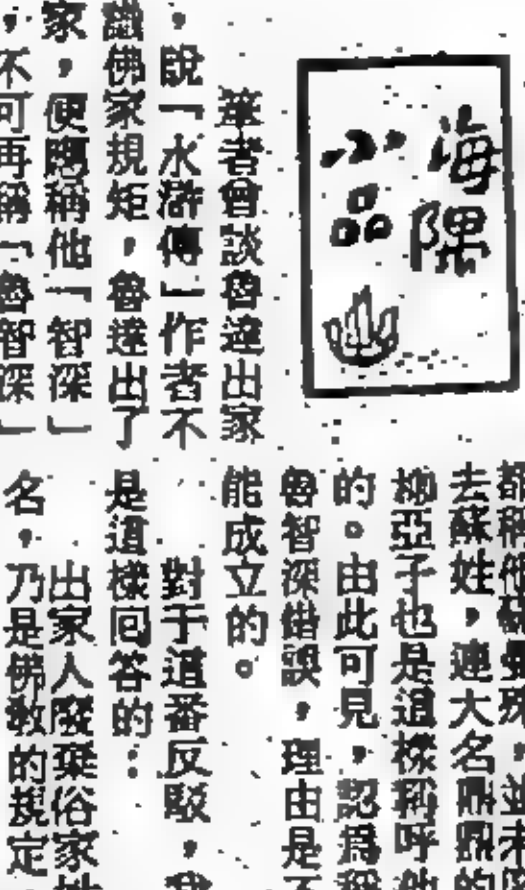 海隅
小品
筆者曾談魯達出家
，說「水滸傳」作者不
識佛家規矩，魯達出了
家，便應稱他「智深」
，不可再稱「魯智深」
都稱他蘇曼殊，並未
去蘇姓，連大名鼎鼎的
柳亞子也是這樣稱呼
的。由此可見，認爲稱
魯智深錯誤，理由是不
能成立的。
對于這番反駁，我
是這樣回答的：
出家人廢棄俗家姓
名，乃是佛教的規定